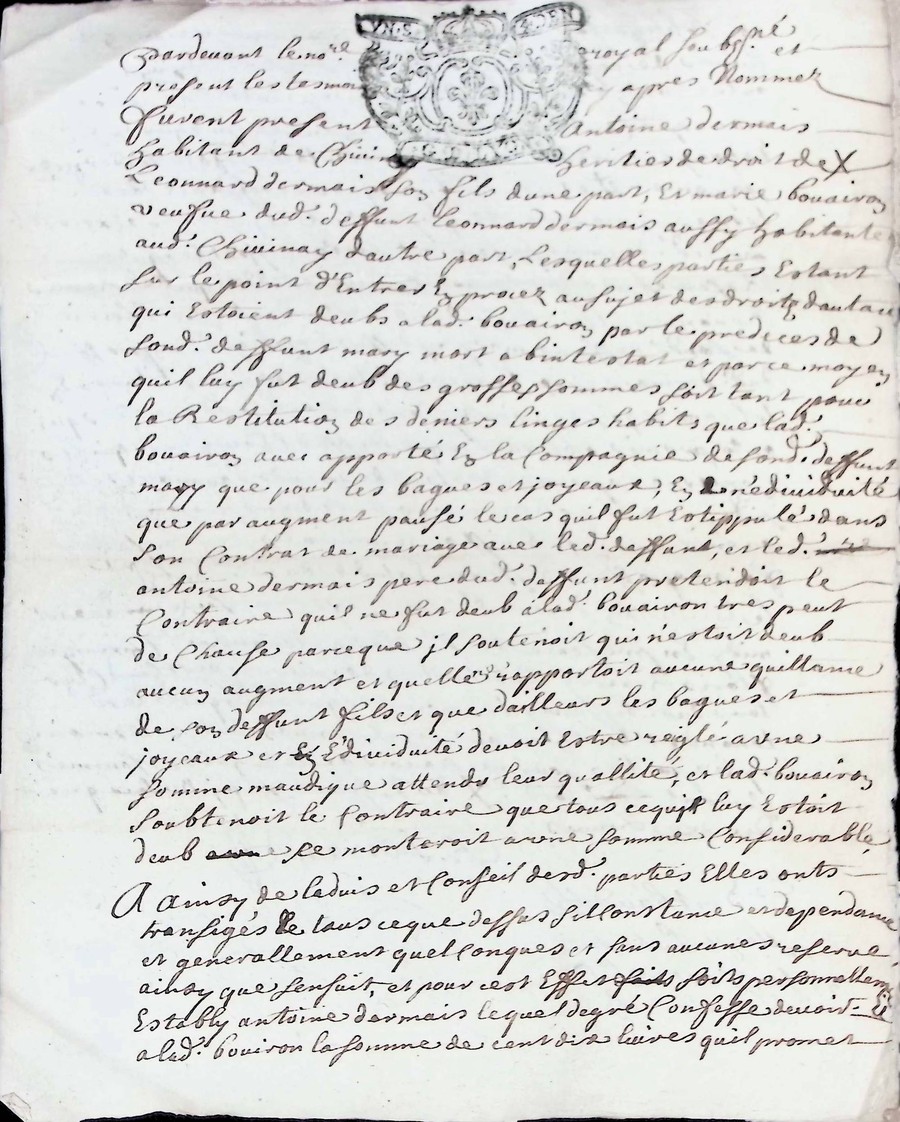 VN.S 4.DEN
Pardevant le no.re royal soubs.né et
present les tesmoins cy apres Nommez
Furent present Antoine dermais
habitant de Chivinay herities de droit de X
Leonnard dermais son fils dune part, Et marie bouairon
veufue dud. deffunt leonnard dermais aussy habitante
aud. Chivinay dautre part, Lesquelles parties Estant
sur le point d'Entrer En procez au sujet des droits
qui Estoient deubs a lad. bouairon par le predeces de
sond. deffunt mary mort abintestat et par ce moyen
quil luy fut deub des grosses sommes soit tant pour
la Restitution des deniers linges habits que lad.
bouairon avec apporté En la Compagnie de sond. deffunt
mary que pour les bagues et joyeaux, En nédividuité
que par augment pausé le cas quil fut Estippulé dans
son Contrat de mariage avec led. deffunt, et led.
antoine dermais pere dud. deffunt pretendoit le
Contraire quil ne fut deub à lad. bouairon tres peut
de Chause parceque jl soutenoit qui n'estoit deub
aucun augment et quelle n'apportoit aucune quittance
de son deffunt fils et que dailleurs les bagues et
joyeaux et En Edividuité devoit Estre reiglé a vne
somme maudique attendu leur quallité, et lad. bouairon
soubtenoit le Contraire que tous cequil luy Estoit
deub se monteroit a vne somme Considerable
A ainsy de ladvis et Conseil desd. parties Elles onts
transigés de tous ce que dessus sirconstance et dependance
et generallement quelconques et sans aucunes reserve
ainsy que sensuit, et pour cest Effet soits personnellem.
Estably antoine dermais lequel de gré Confesse devoir
a lad. bouiron la somme de cent dix livres quil promet